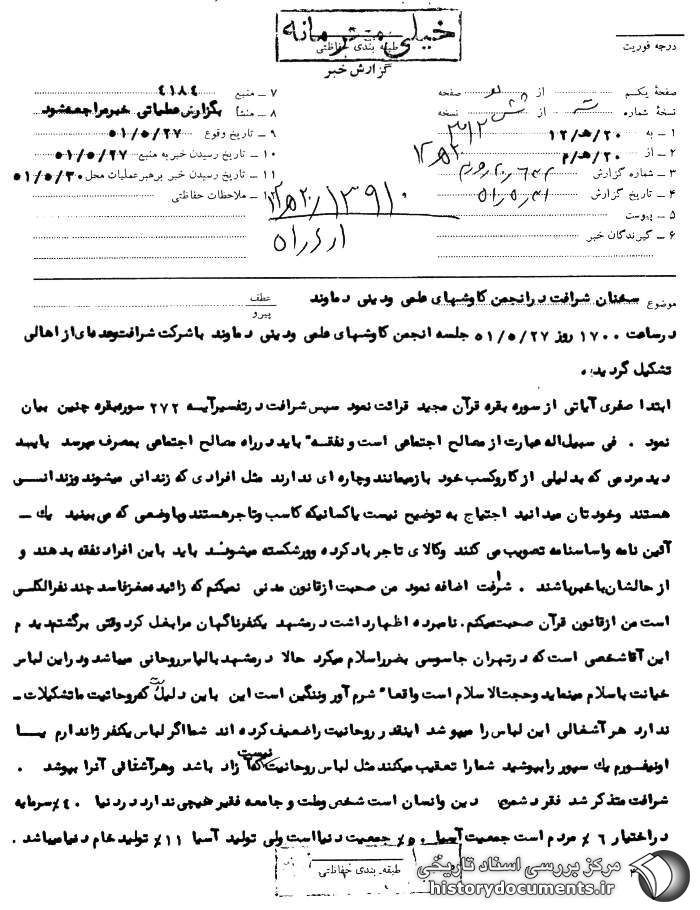 خیلی محرمانه
طبقه بندی حفاظتی
درجه فوریت
گزارش خبر
صفحهٔ یکم از دو صفحه
نسخهٔ شماره سه از شش نسخه
۱ ـ به ۲۰/ﻫ/۱۲ ۳۱۲
۲ ـ از ۲۰/ﻫ/
۳ ـ شماره گزارش
۴ ـ تاریخ گزارش
۵ ـ پیوست
۶ ـ گیرندگان خبر
۷ ـ منبع ۴۱۸۴
۸ ـ منشأ بگزارش عملیاتی خبر مراجعه شود
۹ ـ تاریخ وقوع ۵۱/۵/۲۷
۱۰ ـ تاریخ رسیدن خبر به منبع ۵۱/۵/۲۷
۱۱ ـ تاریخ رسیدن خبر برهبر عملیات محل ۵۱/۵/۳۰
ملاحظات حفاظتی
۱۳۹۱۰
موضوع سخنان شرافت در انجمن کاوشهای علمی و دینی دماوند
عطف
پیرو
در ساعت ۱۷۰۰ روز ۵۱/۵/۲۷ جلسه انجمن کاوشهای علمی و دینی دماوند با شرکت شرافت وعده‌ای از اهالی
تشکیل گردید .
ابتدا صفری آیاتی از سوره بقره قرآن مجید قرائت نمود سپس شرافت در تفسیر آیه ۲۷۲ سوره بقره چنین بیان
نمود . فی سبیل اله عبارت از مصالح اجتماعی است و نفقه باید در راه مصالح اجتماعی بمصرف میرسد باید
دید مردمی که بدلیلی از کار و کسب خود باز میمانند و چاره ای ندارند مثل افرادی که زندانی میشوند و زندانـی
هستند وخودتان میدانید احتیاج به توضیح نیست یا کسانیکه کاسب و تاجر هستند و با وضعی که می بینید یك ـ
آئین نامه و اساسنامه تصویب می کنند و کالای تاجر باد کرده و ورشکسته میشوند باید باین افراد نفقه بدهند و
از حالشان باخبر باشند . شرافت اضافه نمود من صحبت از قانون مدنی نمیکنم که زائیده مغز فاسد چند نفر الکلی
است من از قانون قرآن صحبت میکنم . نامبرده اظهار داشت در مشهد یکنفر ناگهان مرا بغل کرد وقتی برگشتم دیدم
این آقا شخصی است که در تهران جاسوسی بضرر اسلام میکرد حالا در مشهد بالباس روحانی میباشد و در این لباس
خیانت باسلام مینماید و حجت الاسلام است واقعاً شرم آور و ننگین است این باین دلیل است که روحانیت ما تشکیلات ـ
ندارد هر آشغالی این لباس را میپوشد اینقدر روحانیت را ضعیف کرده اند شما اگر لباس یکنفر ژاندارم یـا
اونیفورم یك سپور را بپوشید شما را تعقیب میکنند مثل لباس روحانیت نیست که آزاد باشد و هر آشغالی آنرا بپوشد .
شرافت متذکر شد فقر دشمن دین و انسان است شخص و ملت و جامعه فقیر هیچی ندارد در دنیا ۴۰٪ سرمایه
در اختیار ۶٪ مردم است جمعیت آسیا ۵۰٪ جمعیت دنیا است ولی تولید آسیا ۱۱٪ تولید خام دنیا میباشد .
طبقه بندی حفاظتی
مرکز بررسی اسناد تاریخی
historydocuments.ir